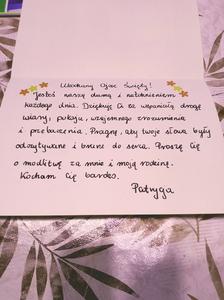 Ukochany Ojcze Święty!
Jesteś naszą dumą i natchnieniem
każdego dnia. Dziękuję Ci za wspaniałą drogę
wiary, pokoju, wzajemnego zrozumienia
i przebaczenia. Pragnę, aby twoje słowa były
odczytywane i brane do serca. Proszę Cię
o modlitwę za mnie i moją rodzinę.
Kocham Cię bardzo.
Patryga